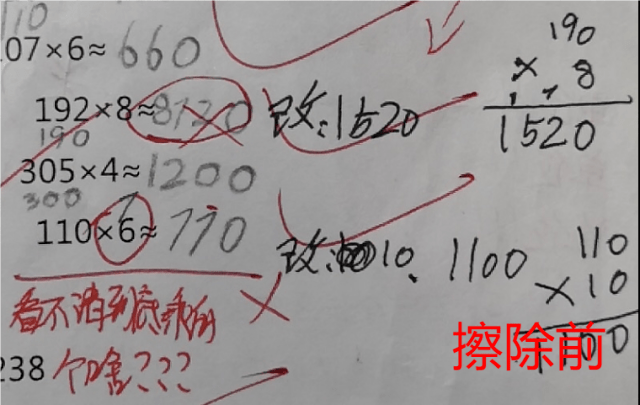 110
107×6≈660
192×8≈8120 改:1520
190
× 8
1520
190
305×4≈1200
300
110×6≈770 改: 10. 1100
110
×10
1100
看不清到底乘的
个啥???
238
擦除前